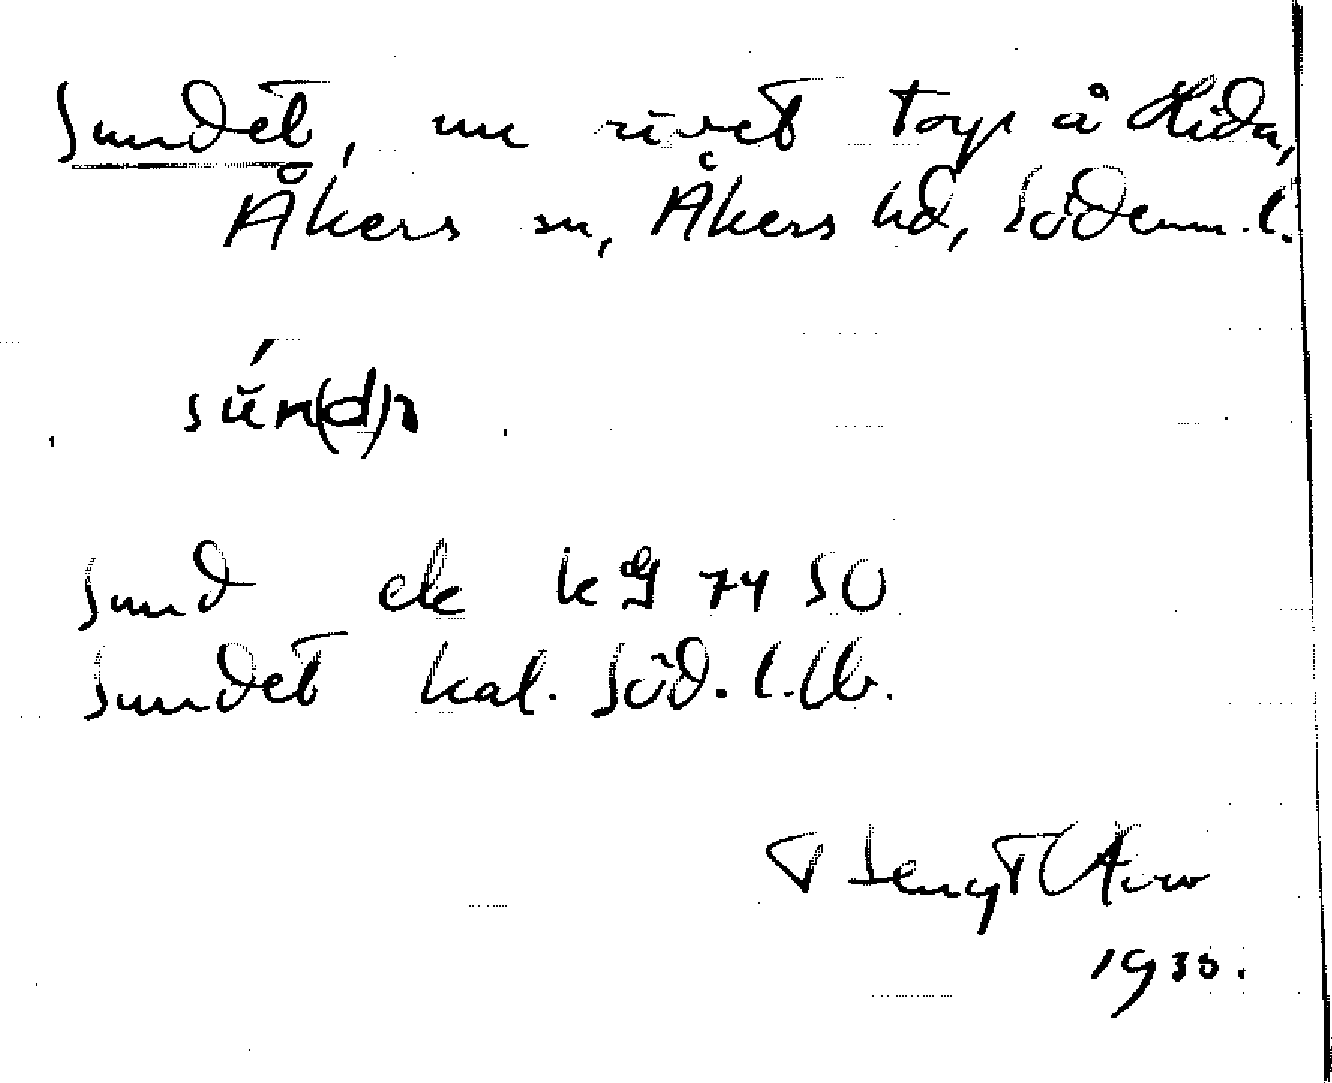 Sundet, nu rivet torp å Hida,
Åkers sn, Åkers hd, Söderm. l.
sún(d)
Sund ek kg 74 50
Sundet kal. Söd. l.
Bengt
1930.